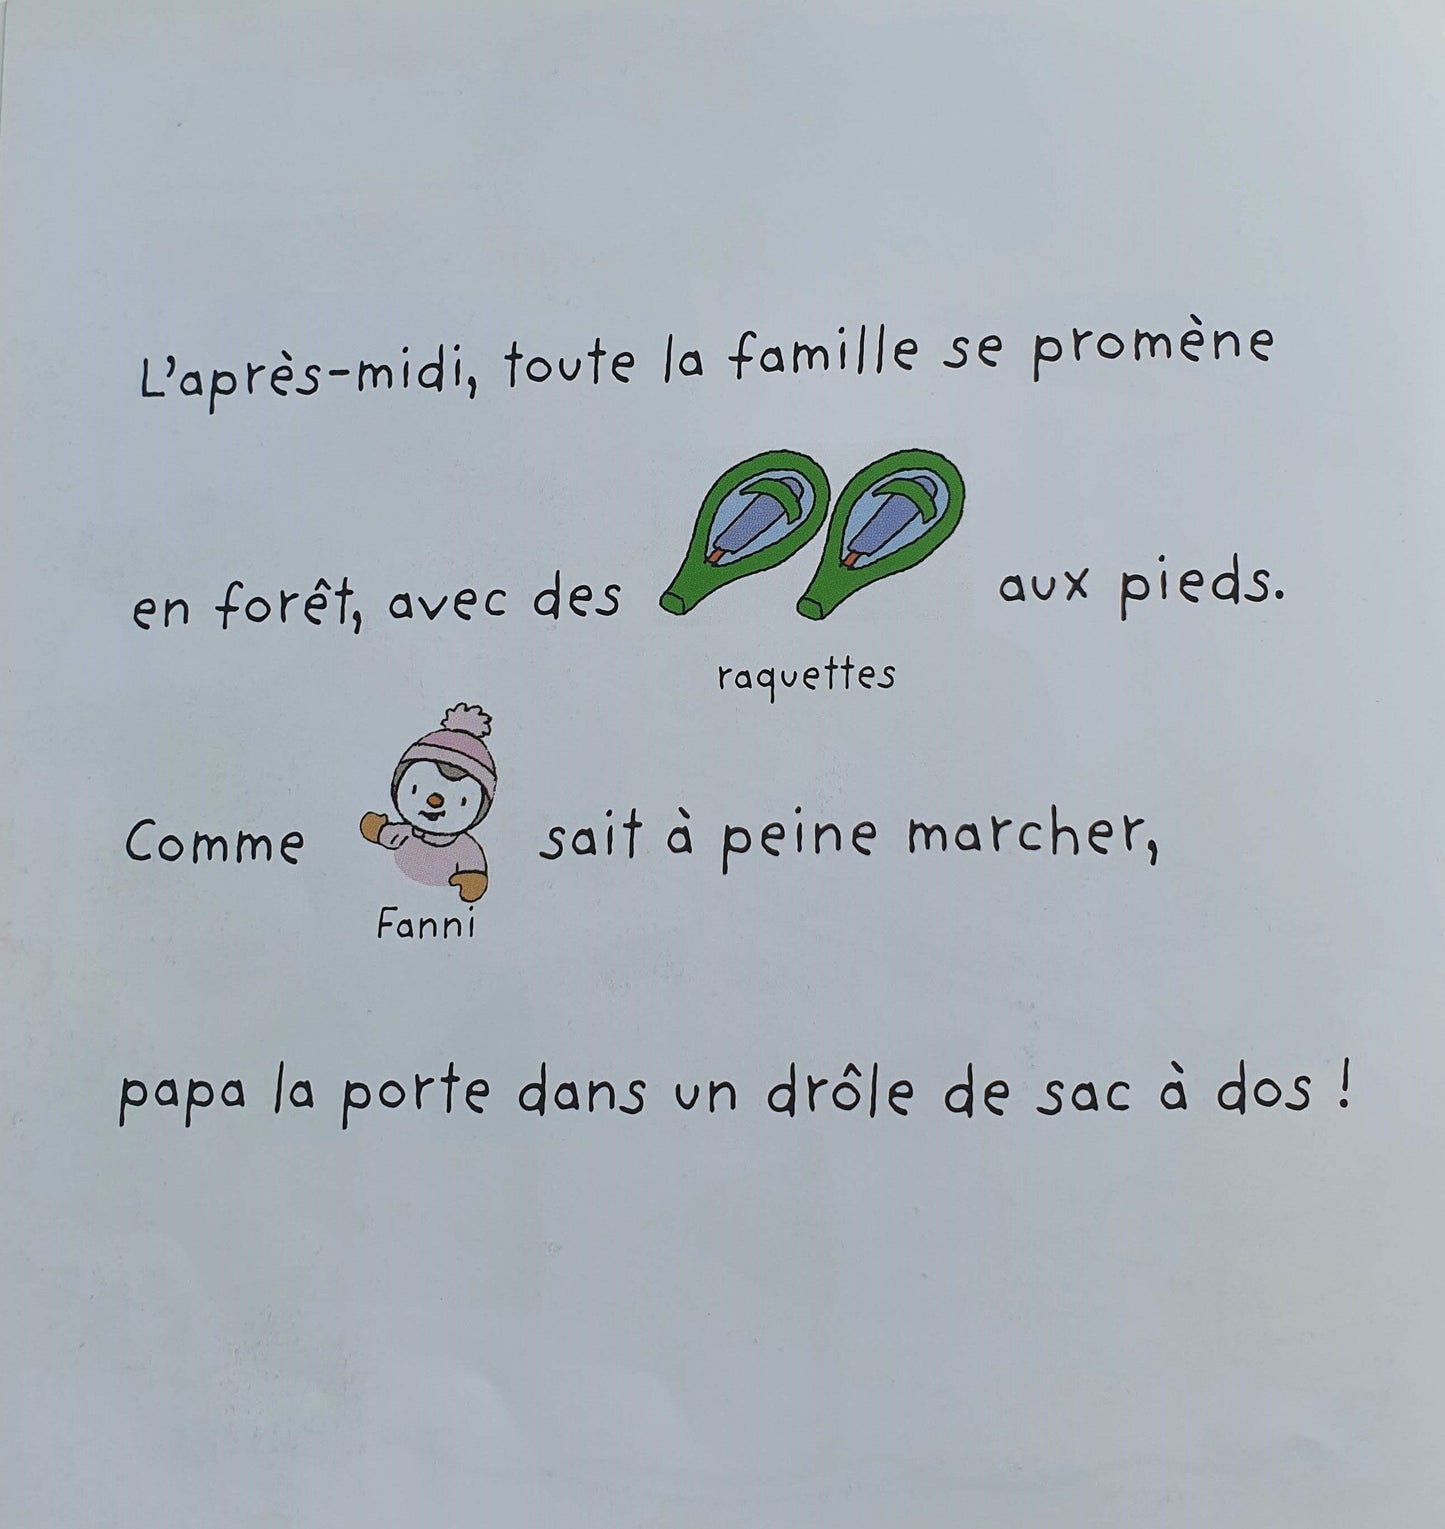 L'après-midi, toute la famille se promène
en forêt, avec des aux pieds.
raquettes
Comme sait à peine marcher,
Fanni
papa la porte dans un drôle de sac à dos !